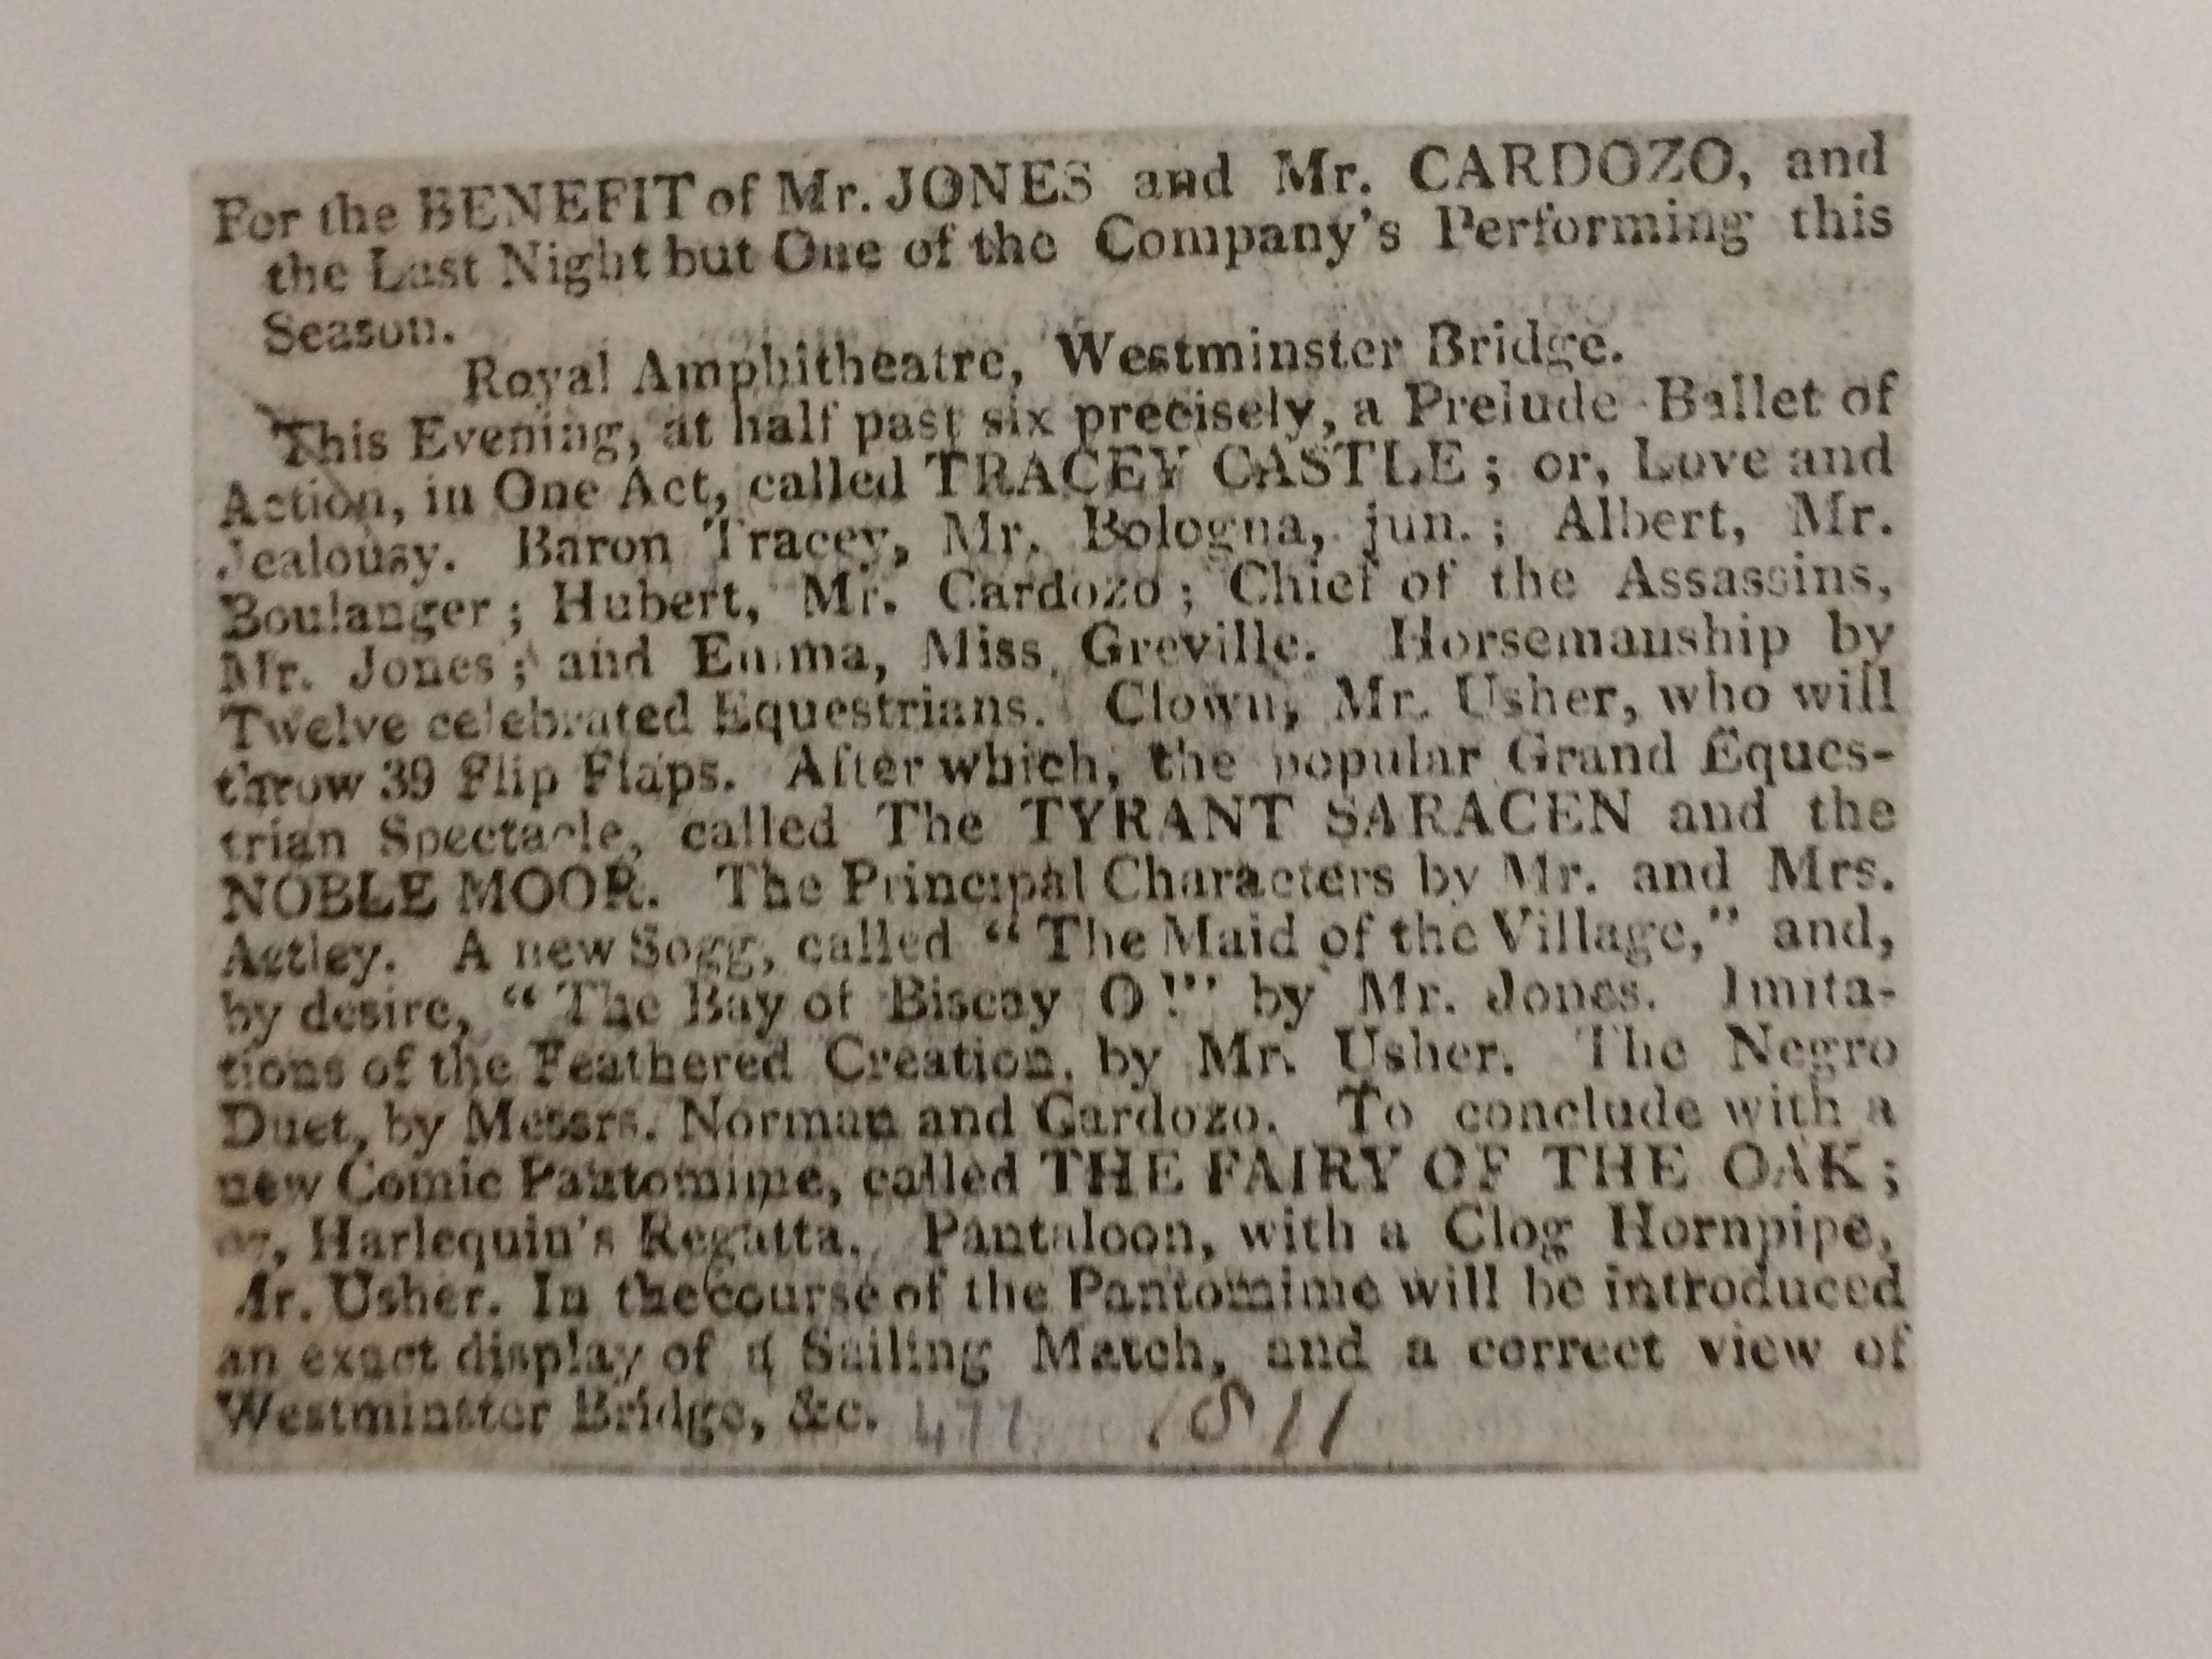 For the BENEFIT of Mr. JONES and Mr. CARDOZO, and
the Last Night but One of the Company's Performing this
Season.
Royal Amphitheatre, Westminster Bridge.
This Evening, at half past six precisely, a Prelude Ballet of
Action, in One Act, called TRACEY CASTLE; or, Love and
Jealousy. Baron Tracey, Mr. Bologna, jun.; Albert, Mr.
Boulanger; Hubert, Mr. Cardozo; Chief of the Assassins,
Mr. Jones; and Emma, Miss Greville. Horsemanship by
Twelve celebrated Equestrians. Clown, Mr. Usher, who will
throw 39 Flip Flaps. After which, the popular Grand Eques-
trian Spectacle, called The TYRANT SARACEN and the
NOBLE MOOR. The Principal Characters by Mr. and Mrs.
Astley. A new Sogg, called "The Maid of the Village," and,
by desire, "The Bay of Biscay O!" by Mr. Jones. Imita-
tions of the Feathered Creation, by Mr. Usher. The Negro
Duet, by Messrs. Norman and Cardozo. To conclude with a
new Comic Pantomime, called THE FAIRY OF THE OAK;
or, Harlequin's Regatta. Pantaloon, with a Clog Hornpipe,
Mr. Usher. In the course of the Pantomime will be introduced
an exact display of a Sailing Match, and a correct view of
Westminster Bridge, &c. 477 1811